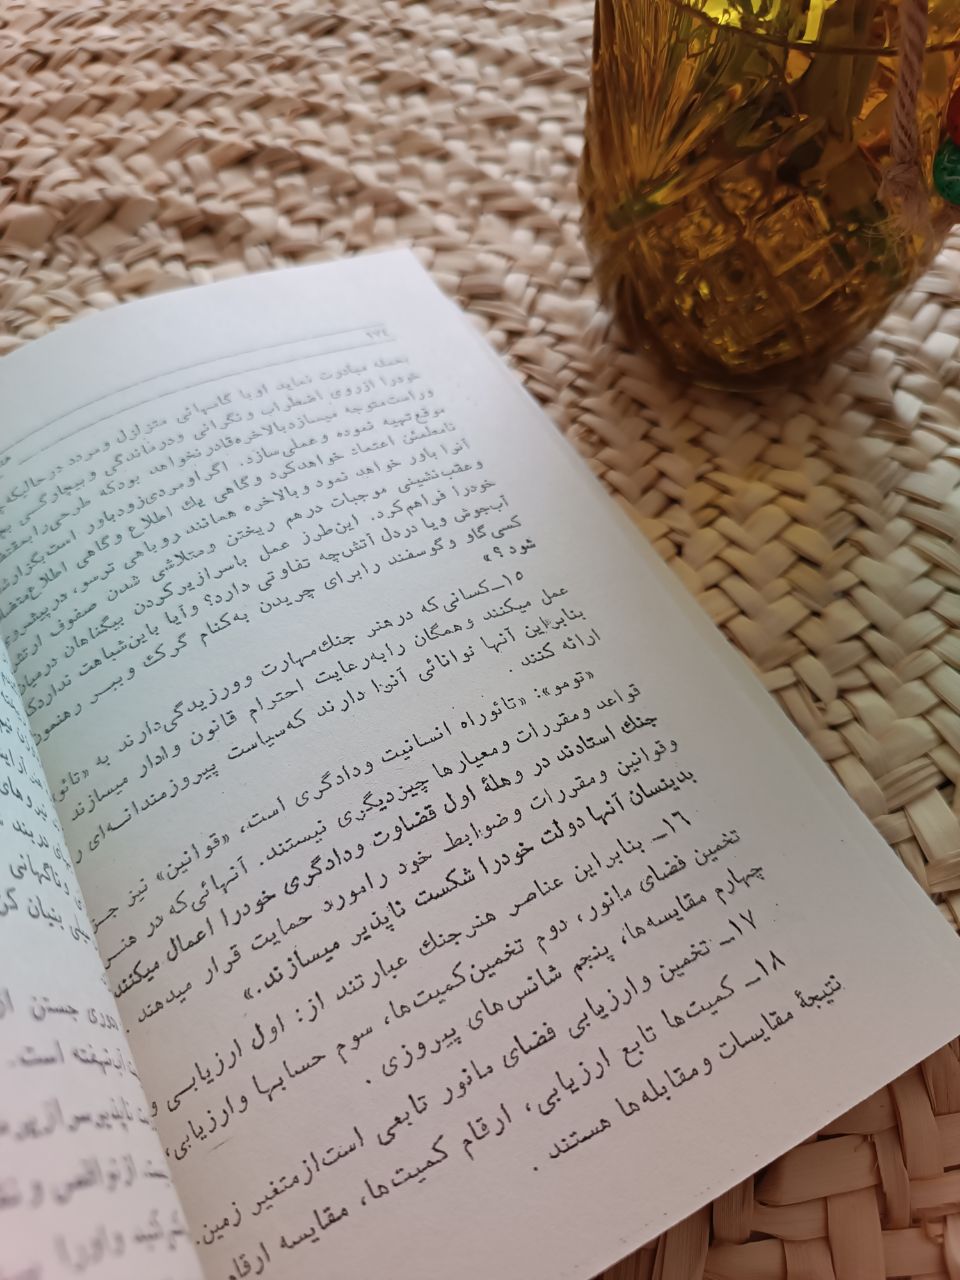 ۱۷٤
بحمله مبادرت نماید او با گامهائی متزلزل و مردد در حالیکه
خود را از روی اضطراب و نگرانی و درماندگی و بیچارگی
و راست متوجه میسازد بالاخره قادر نخواهد بود که طرحی را
موقع تهیه نموده و عملی سازد. اگر او مردی زود باور است
نامطمئن اعتماد خواهد کرد و گاهی یك اطلاع و گاهی اطلاع
آنرا باور خواهد نمود و بالاخره همانند روباهی ترسو، در
وعقب‌نشینی موجبات درهم ریختن و متلاشی شدن صفوف
خود را فراهم کرد. این طرز عمل با سرازیر کردن بیگناهان در میان
آب‌جوش و یا در دل آتش چه تفاوتی دارد؟ و آیا با این شباهت ندارد که
کسی گاو و گوسفند را برای چریدن به کنام گرگ و ببر
شود؟»
۱۵ـ کسانی که در هنر جنك مهارت و ورزیدگی دارند به «تائو
عمل میکنند و همگان را به رعایت احترام قانون وادار میسازند
بنابراین آنها توانائی آنرا دارند که سیاست پیروزمندانه‌ای را
ارائه کنند .
«تومو»: «تائو راه انسانیت و دادگری است، «قوانین» نیز جز
قواعد و مقررات و معیارها چیز دیگری نیستند. آنهائی که در هنر
جنك استادند در وهلهٔ اول قضاوت و دادگری خود را اعمال میکنند
وقوانین و مقررات و ضوابط خود را مورد حمایت قرار میدهند .
بدینسان آنها دولت خود را شکست ناپذیر میسازند.»
۱٦ـ بنابراین عناصر هنر جنك عبارتند از: اول ارزیابی و
تخمین فضای مانور، دوم تخمین کمیت‌ها، سوم حسابها و ارزیابی،
چهارم مقایسه‌ها، پنجم شانس‌های پیروزی .
۱۷ـ تخمین و ارزیابی فضای مانور تابعی است از متغیر زمین.
۱۸ـ کمیت‌ها تابع ارزیابی، ارقام کمیت‌ها، مقایسه ارقام
نتیجهٔ مقایسات و مقابله‌ها هستند .